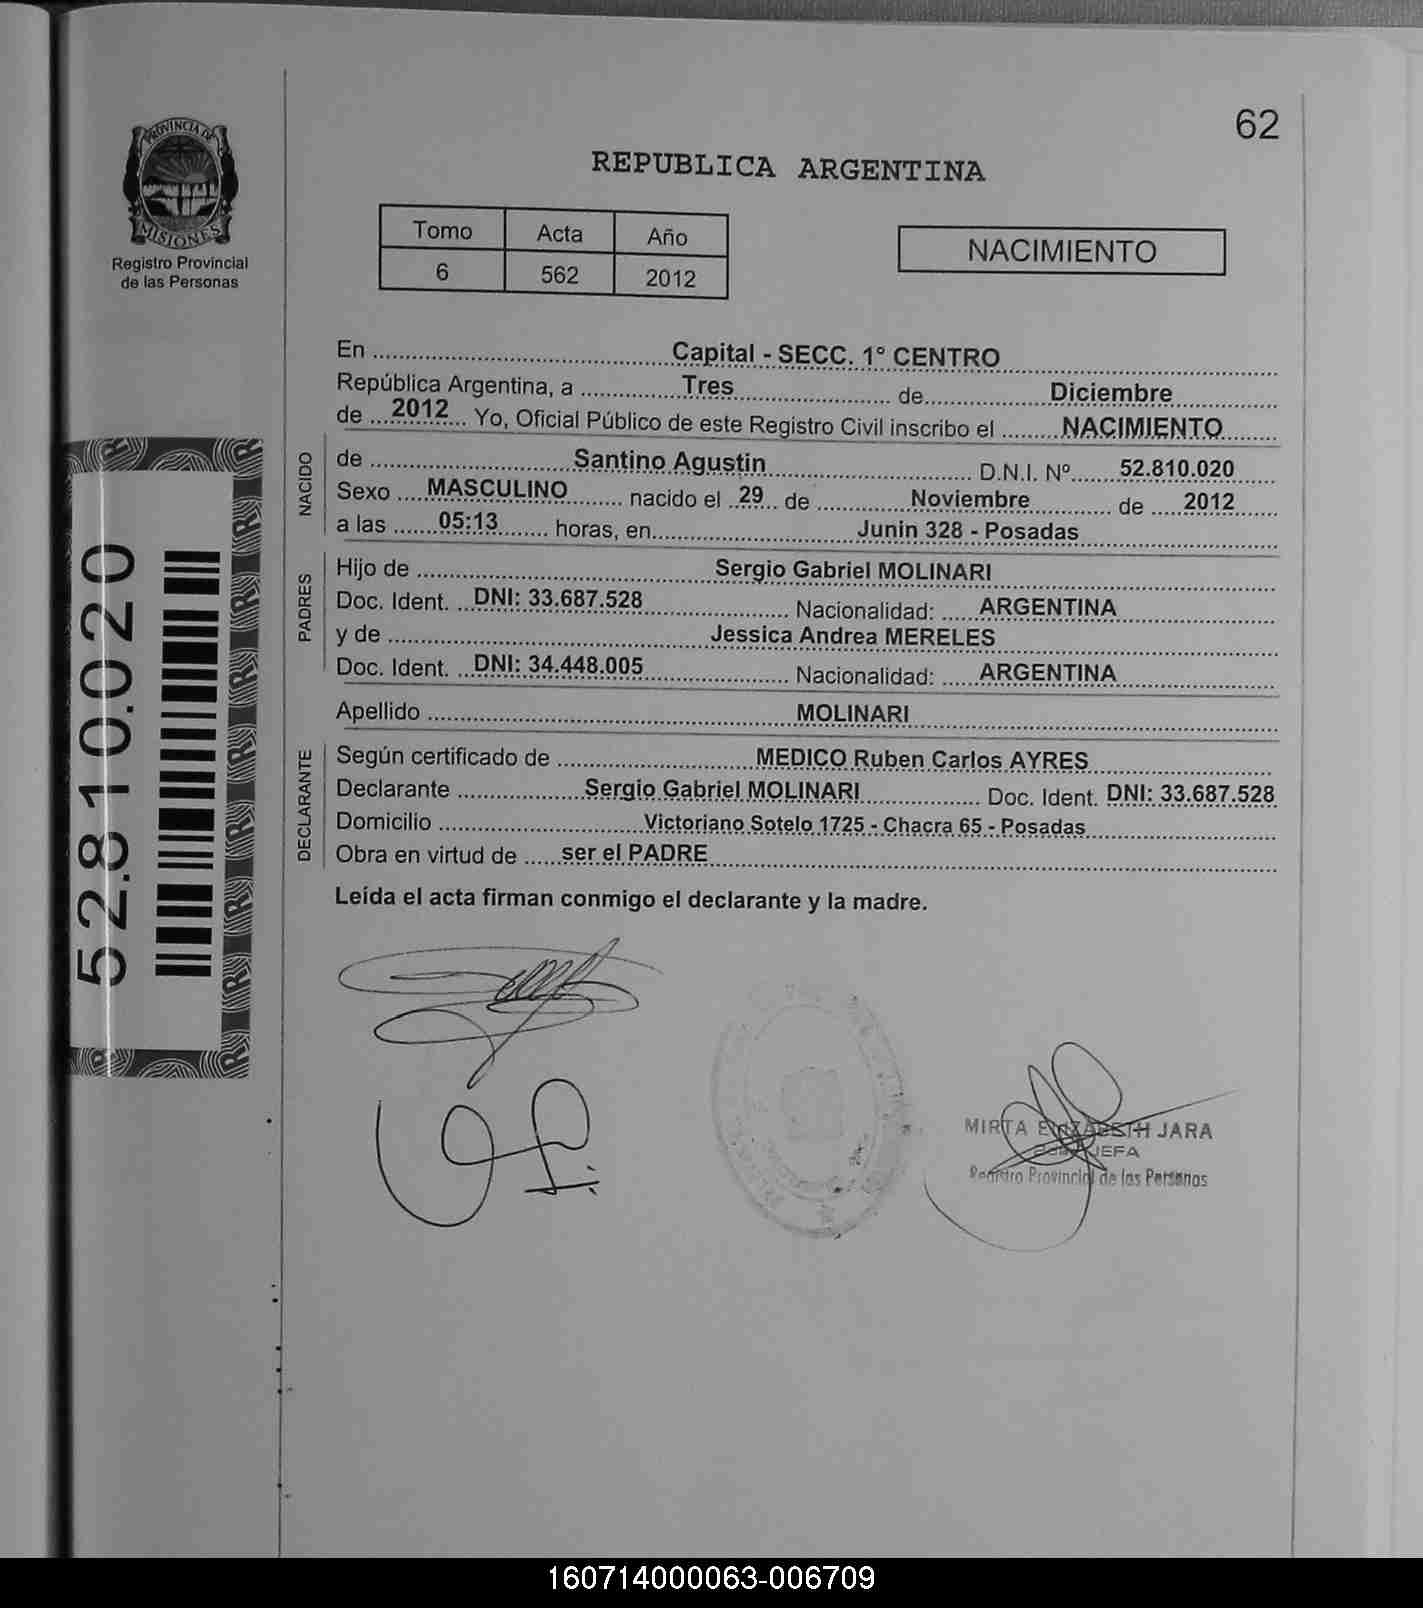 62
PROVINCIA DE
MISIONES
Registro Provincial
de las Personas
REPUBLICA ARGENTINA
Tomo Acta Año
6 562 2012
NACIMIENTO
En Capital - SECC. 1° CENTRO
República Argentina, a Tres de Diciembre
de 2012 Yo, Oficial Público de este Registro Civil inscribo el NACIMIENTO
NACIDO
de Santino Agustin D.N.I. Nº 52.810.020
Sexo MASCULINO nacido el 29 de Noviembre de 2012
a las 05:13 horas, en Junin 328 - Posadas
PADRES
Hijo de Sergio Gabriel MOLINARI
Doc. Ident. DNI: 33.687.528 Nacionalidad: ARGENTINA
y de Jessica Andrea MERELES
Doc. Ident. DNI: 34.448.005 Nacionalidad: ARGENTINA
Apellido MOLINARI
DECLARANTE
Según certificado de MEDICO Ruben Carlos AYRES
Declarante Sergio Gabriel MOLINARI Doc. Ident. DNI: 33.687.528
Domicilio Victoriano Sotelo 1725 - Chacra 65 - Posadas
Obra en virtud de ser el PADRE
Leída el acta firman conmigo el declarante y la madre.
52.810.020
MIRTA ELIZABETH JARA
JEFA
Registro Provincial de las Personas
160714000063-006709